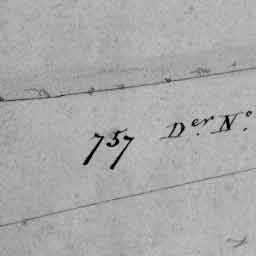 757 Der. No.